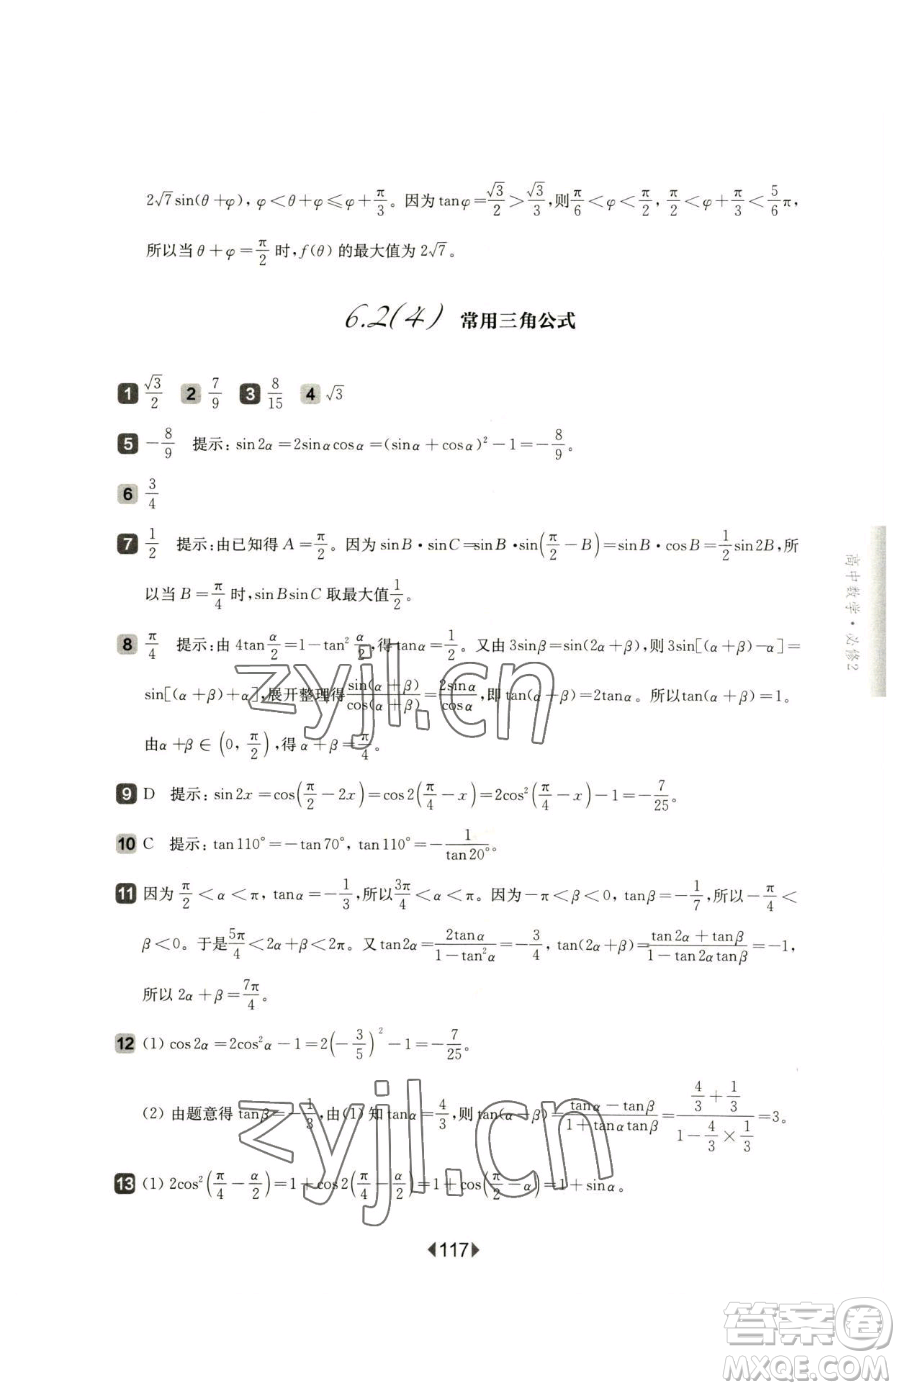 2√7sin(θ+φ), φ<θ+φ≤φ+π/3。因为tanφ=√3/2>√3/3,则π/6<φ<π/2, π/2<φ+π/3<5/6π,
所以当θ+φ=π/2时,f(θ)的最大值为2√7。
6.2(4) 常用三角公式
1 √3/2 2 7/9 3 8/15 4 √3
5 -8/9 提示:sin2α=2sinαcosα=(sinα+cosα)²-1=-8/9。
6 3/4
7 1/2 提示:由已知得A=π/2。因为sinB·sinC=sinB·sin(π/2-B)=sinB·cosB=1/2sin2B,所
以当B=π/4时,sinBsinC取最大值1/2。
8 π/4 提示:由4tanα/2=1-tan²α/2,得tanα=1/2。又由3sinβ=sin(2α+β),则3sin[(α+β)-α]=
sin[(α+β)+α],展开整理得sin(α+β)/cos(α+β)=2sinα/cosα,即tan(α+β)=2tanα。所以tan(α+β)=1。
由α+β∈(0,π/2),得α+β=π/4。
9 D 提示:sin2x=cos(π/2-2x)=cos2(π/4-x)=2cos²(π/4-x)-1=-7/25。
10 C 提示:tan110°=-tan70°,tan110°=-1/tan20°。
11 因为π/2<α<π,tanα=-1/3,所以3π/4<α<π。因为-π<β<0,tanβ=-1/7,所以-π/4<
β<0。于是5π/4<2α+β<2π。又tan2α=2tanα/1-tan²α=-3/4,tan(2α+β)=tan2α+tanβ/1-tan2αtanβ=-1,
所以2α+β=7π/4。
12 (1) cos2α=2cos²α-1=2(-3/5)²-1=-7/25。
(2) 由题意得tanβ=-1/3,由(1)知tanα=4/3,则tan(α+β)=tanα-tanβ/1+tanαtanβ=4/3+1/3/1-4/3×1/3=3。
13 (1) 2cos²(π/4-α/2)=1+cos2(π/4-α/2)=1+cos(π/2-α)=1+sinα。
117
高中数学·必修2
zyjl.cn
zyjl.cn
答案圈
MXQE.COM